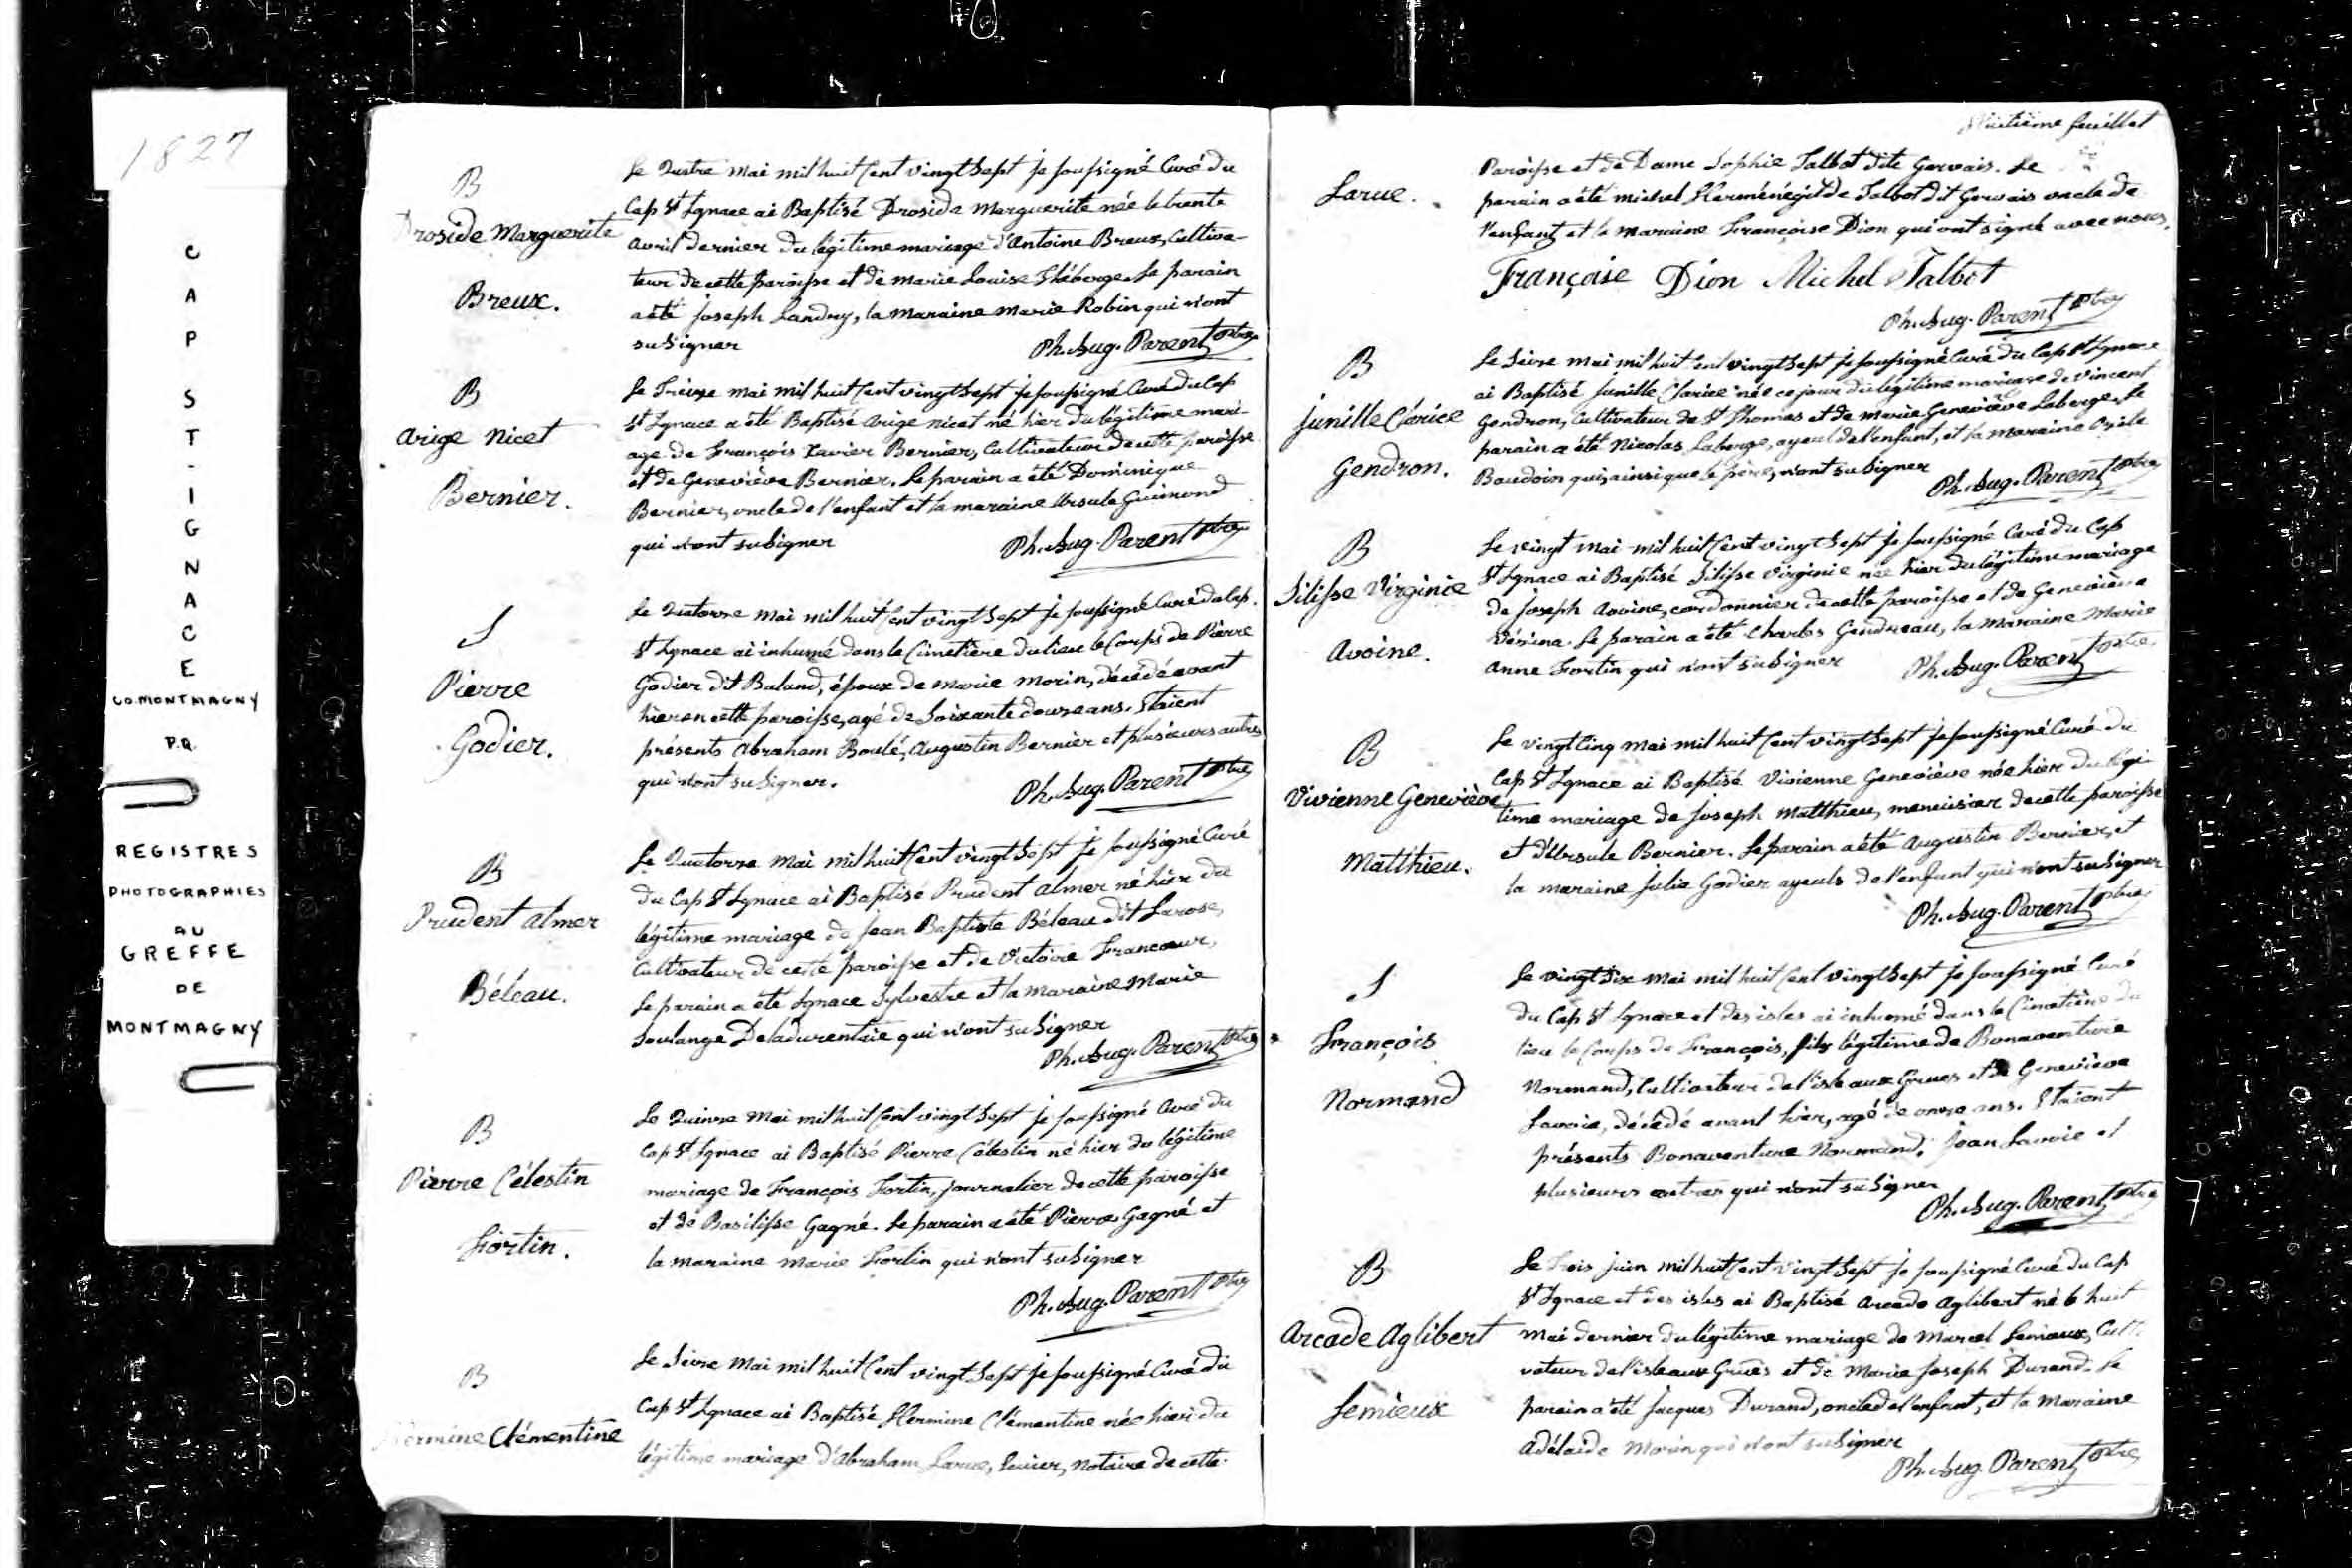 1827
CAP ST-IGNACE
CO. MONTMAGNY
P.Q.
REGISTRES
PHOTOGRAPHIES
AU
GREFFE
DE
MONTMAGNY
B
Droside Marguerite
Breux.
Le Quatre mai mil huit Cent vingt Sept je soussigné Curé du
Cap St Ignace ai Baptisé Droside Marguerite née le trente
avril dernier du légitime mariage d'Antoine Breux, Cultiva-
teur de cette paroisse et de marie Louise Théberge. Le parain
a été joseph Landry, la maraine marie Robin qui n'ont
su signer
Ph. Aug. Parent Ptre
B
arige nicet
Bernier.
Le Treize mai mil huit Cent vingt Sept je soussigné Curé du Cap
St Ignace a été Baptisé arige nicet né hier du légitime mari-
age de François Xavier Bernier, Cultivateur de cette paroisse
et de Geneviève Bernier. Le parain a été Dominique
Bernier, oncle de l'enfant et la maraine Ursule Guimond
qui n'ont su signer
Ph. Aug. Parent Ptre
S
Pierre
Godier.
Le Quatorze mai mil huit Cent vingt Sept je soussigné Curé du Cap
St Ignace ai inhumé dans le Cimetière du lieu le Corps de Pierre
Godier dit Baland, époux de marie morin, décédé avant
hier en cette paroisse, agé de Soixante douze ans. Etaient
présents abraham Boulé, augustin Bernier et plusieurs autres
qui n'ont su signer.
Ph. Aug. Parent Ptre
B
Prudent almer
Béleau.
Le Quatorze mai mil huit Cent vingt Sept je soussigné Curé
du Cap St Ignace ai Baptisé Prudent almer né hier du
légitime mariage de jean Baptiste Béleau dit Larose,
Cultivateur de cette paroisse et de Victoire Francoeur,
Le parain a été Ignace Sylvestre et la maraine marie
Soulange Deladurentaie qui n'ont su signer
Ph. Aug. Parent Ptre
B
Pierre Célestin
Fortin.
Le Quinze mai mil huit Cent vingt Sept je soussigné Curé du
Cap St Ignace ai Baptisé Pierre Célestin né hier du légitime
mariage de François Fortin, journalier de cette paroisse
et de Basilisse Gagné. Le parain a été Pierre Gagné et
la maraine marie Fortin qui n'ont su signer
Ph. Aug. Parent Ptre
B
Hermine Clémentine
Le Seize mai mil huit Cent vingt Sept je soussigné Curé du
Cap St Ignace ai Baptisé Hermine Clémentine née hier du
légitime mariage d'abraham Larue, Ecuier, notaire de cette
Huitième feuillet
Larue.
Paroisse et de Dame Sophie Talbot dite Gervais. Le
parain a été michel Herménégilde Talbot dit Gervais oncle de
l'enfant et la maraine Françoise Dion qui ont signé avec nous.
Françoise Dion Michel Talbot
Ph. Aug. Parent Ptre
B
junille Clarice
Gendron.
Le Seize mai mil huit Cent vingt Sept je soussigné Curé du Cap St Ignace
ai Baptisé junille Clarice née ce jour du légitime mariage de Vincent
Gendron, Cultivateur de St Thomas et de marie Geneviève Laberge. Le
parain a été Nicolas Laberge, ayeul de l'enfant, et la maraine
Baudoin qui, ainsi que le père, n'ont su signer
Ph. Aug. Parent Ptre
B
Silisse Virginie
avoine.
Le vingt mai mil huit Cent vingt Sept je soussigné Curé du Cap
St Ignace ai Baptisé Silisse Virginie née hier du légitime mariage
de joseph avoine, cordonnier de cette paroisse et de Geneviève
Vésina. Le parain a été Charles Gendreau, la maraine Marie
anne Fortin qui n'ont su signer
Ph. Aug. Parent Ptre
B
Vivienne Geneviève
Matthieu.
Le vingt Cinq mai mil huit Cent vingt Sept je soussigné Curé du
Cap St Ignace ai Baptisé Vivienne Geneviève née hier du légi-
time mariage de joseph Matthieu, menuisier de cette paroisse
et d'Ursule Bernier. Le parain a été augustin Bernier, et
la maraine julie Godier ayeuls de l'enfant qui n'ont su signer
Ph. Aug. Parent Ptre
S
François
Normand
Le vingt Six mai mil huit Cent vingt Sept je soussigné Curé
du Cap St Ignace et des isles ai inhumé dans le Cimetière du
lieu le Corps de François, fils légitime de Bonaventure
Normand, Cultivateur de l'isle aux Grues et de Geneviève
Lavoie, décédé avant hier, agé de onze ans. Etaient
présents Bonaventure Normand, Jean Lavoie et
plusieurs autres qui n'ont su signer
Ph. Aug. Parent Ptre
B
arcade aglibert
Lemieux
Le Trois juin mil huit Cent vingt Sept je soussigné Curé du Cap
St Ignace et des isles ai Baptisé arcade aglibert né le huit
mai dernier du légitime mariage de Marcel Lemieux, Culti-
vateur de l'isle aux Grues et de Marie joseph Durand. Le
parain a été jacques Durand, oncle de l'enfant, et la maraine
adélaide morin qui n'ont su signer
Ph. Aug. Parent Ptre